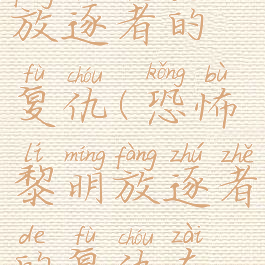 放逐者的
fù chóu kǒng bù
复仇(恐怖
lí míng fàng zhú zhě
黎明放逐者
de fù chóu zài
的复仇在